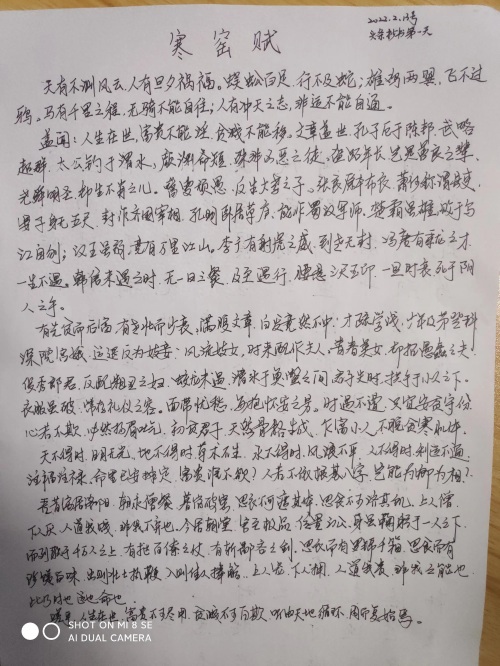 2022.2.13号
头条抄书第一天
寒窑赋
天有不测风云,人有旦夕祸福。蜈蚣百足,行不及蛇;雄鸡两翼,飞不过
鸦。马有千里之程,无骑不能自往;人有冲天之志,非运不能自通。
盖闻:人生在世,富贵不能淫,贫贱不能移。文章盖世,孔子厄于陈邦;武略
超群,太公钓于渭水。颜渊命短,殊非凶恶之徒;盗跖年长,岂是善良之辈。
尧舜明圣,却生不肖之儿。瞽叟顽愚,反生大孝之子。张良原是布衣,萧何称谓县吏。
晏子身无五尺,封为齐国宰相。孔明卧居草庐,能作蜀汉军师。楚霸虽雄,败于
江自刎;汉王虽弱,竟有万里江山。李广有射虎之威,到老无封。冯唐有乘龙之才,
一生不遇。韩信未遇之时,无一日之餐,及至遇行,腰悬三尺玉印,一旦时衰,死于阴
人之手。
有先贫而后富,有老壮而少衰。满腹文章,白发竟然不中;才疏学浅,少年及第登科。
深院宫娥,运退反为妓妾;风流妓女,时来配作夫人。青春美女,却招愚蠢之夫;
俊秀郎君,反配粗丑之妇。蛟龙未遇,潜水于鱼鳖之间;君子失时,拱手于小人之下。
衣服虽破,常存礼仪之容;面带忧愁,每抱怀安之量。时遭不遇,只宜安贫守份;
心若不欺,必然扬眉吐气。初贫君子,天然骨格生成;乍富小人,不脱贫寒肌体。
天不得时,日月无光;地不得时,草木不生;水不得时,风浪不平;人不得时,利运不通。
注福注禄,命里已安排定,富贵谁不欲?人若不依根基八字,岂能为卿为相?
吾昔寓居洛阳,朝求僧餐,暮宿破窑,思衣不可遮其体,思食不可济其饥,上人憎,
下人厌,人道我贱,非我不弃也。今居朝堂,官至极品,位置三公,身虽鞠躬于一人之下,
而列职于千万人之上,有挞百僚之杖,有斩鄙吝之剑,思衣而有罗锦千箱,思食而有
珍馐百味,出则壮士执鞭,入则佳人捧觞,上人宠,下人拥。人道我贵,非我之能也,
此乃时也运也命也。
嗟呼!人生在世,富贵不可尽用,贫贱不可自欺,听由天地循环,周而复始焉。
SHOT ON MI 8 SE
AI DUAL CAMERA